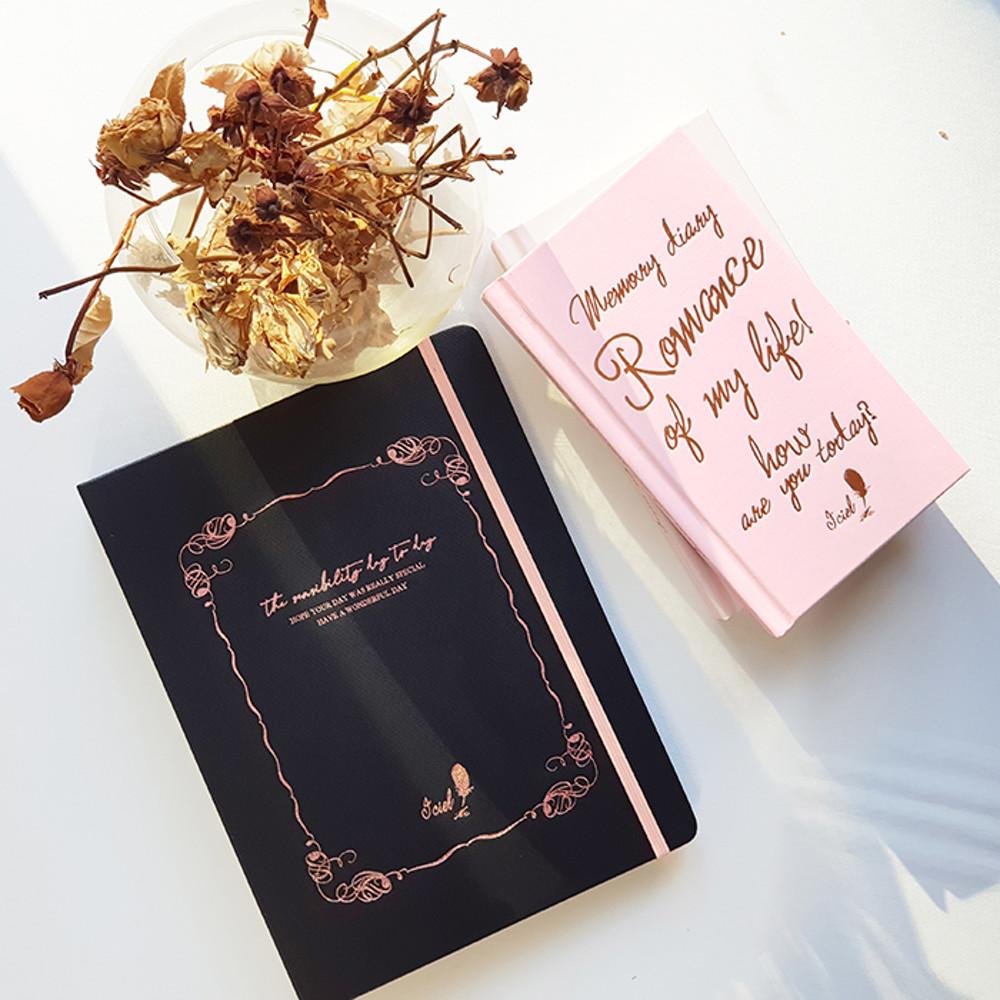 the sensibility day to day
HOPE YOUR DAY WAS REALLY SPECIAL
HAVE A WONDERFUL DAY
Iciel
Memory diary
Romance
of my life!
how
are you today?
Iciel